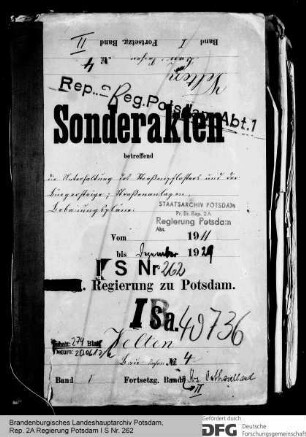 Band I Fortsetzg. Band II
4
Velten
Rep. 2 Reg. Potsdam Abt. 1
Sonderakten
betreffend
die Unterhaltung des Straßenpflasters und der
Bürgersteige, Straßenanlagen,
Bebauungspläne.
STAATSARCHIV POTSDAM
Pr. Br. Rep. 2A
Regierung Potsdam
Abt.
Vom 1911
bis Dezember 1929
I S Nr 262
Regierung zu Potsdam.
I Sa. 40736
274 Blatt
Velten
No 4
Band I Fortsetzg. Band II
Brandenburgisches Landeshauptarchiv Potsdam,
Rep. 2A Regierung Potsdam I S Nr. 262
Gefördert durch
DFG Deutsche
Forschungsgemeinschaft